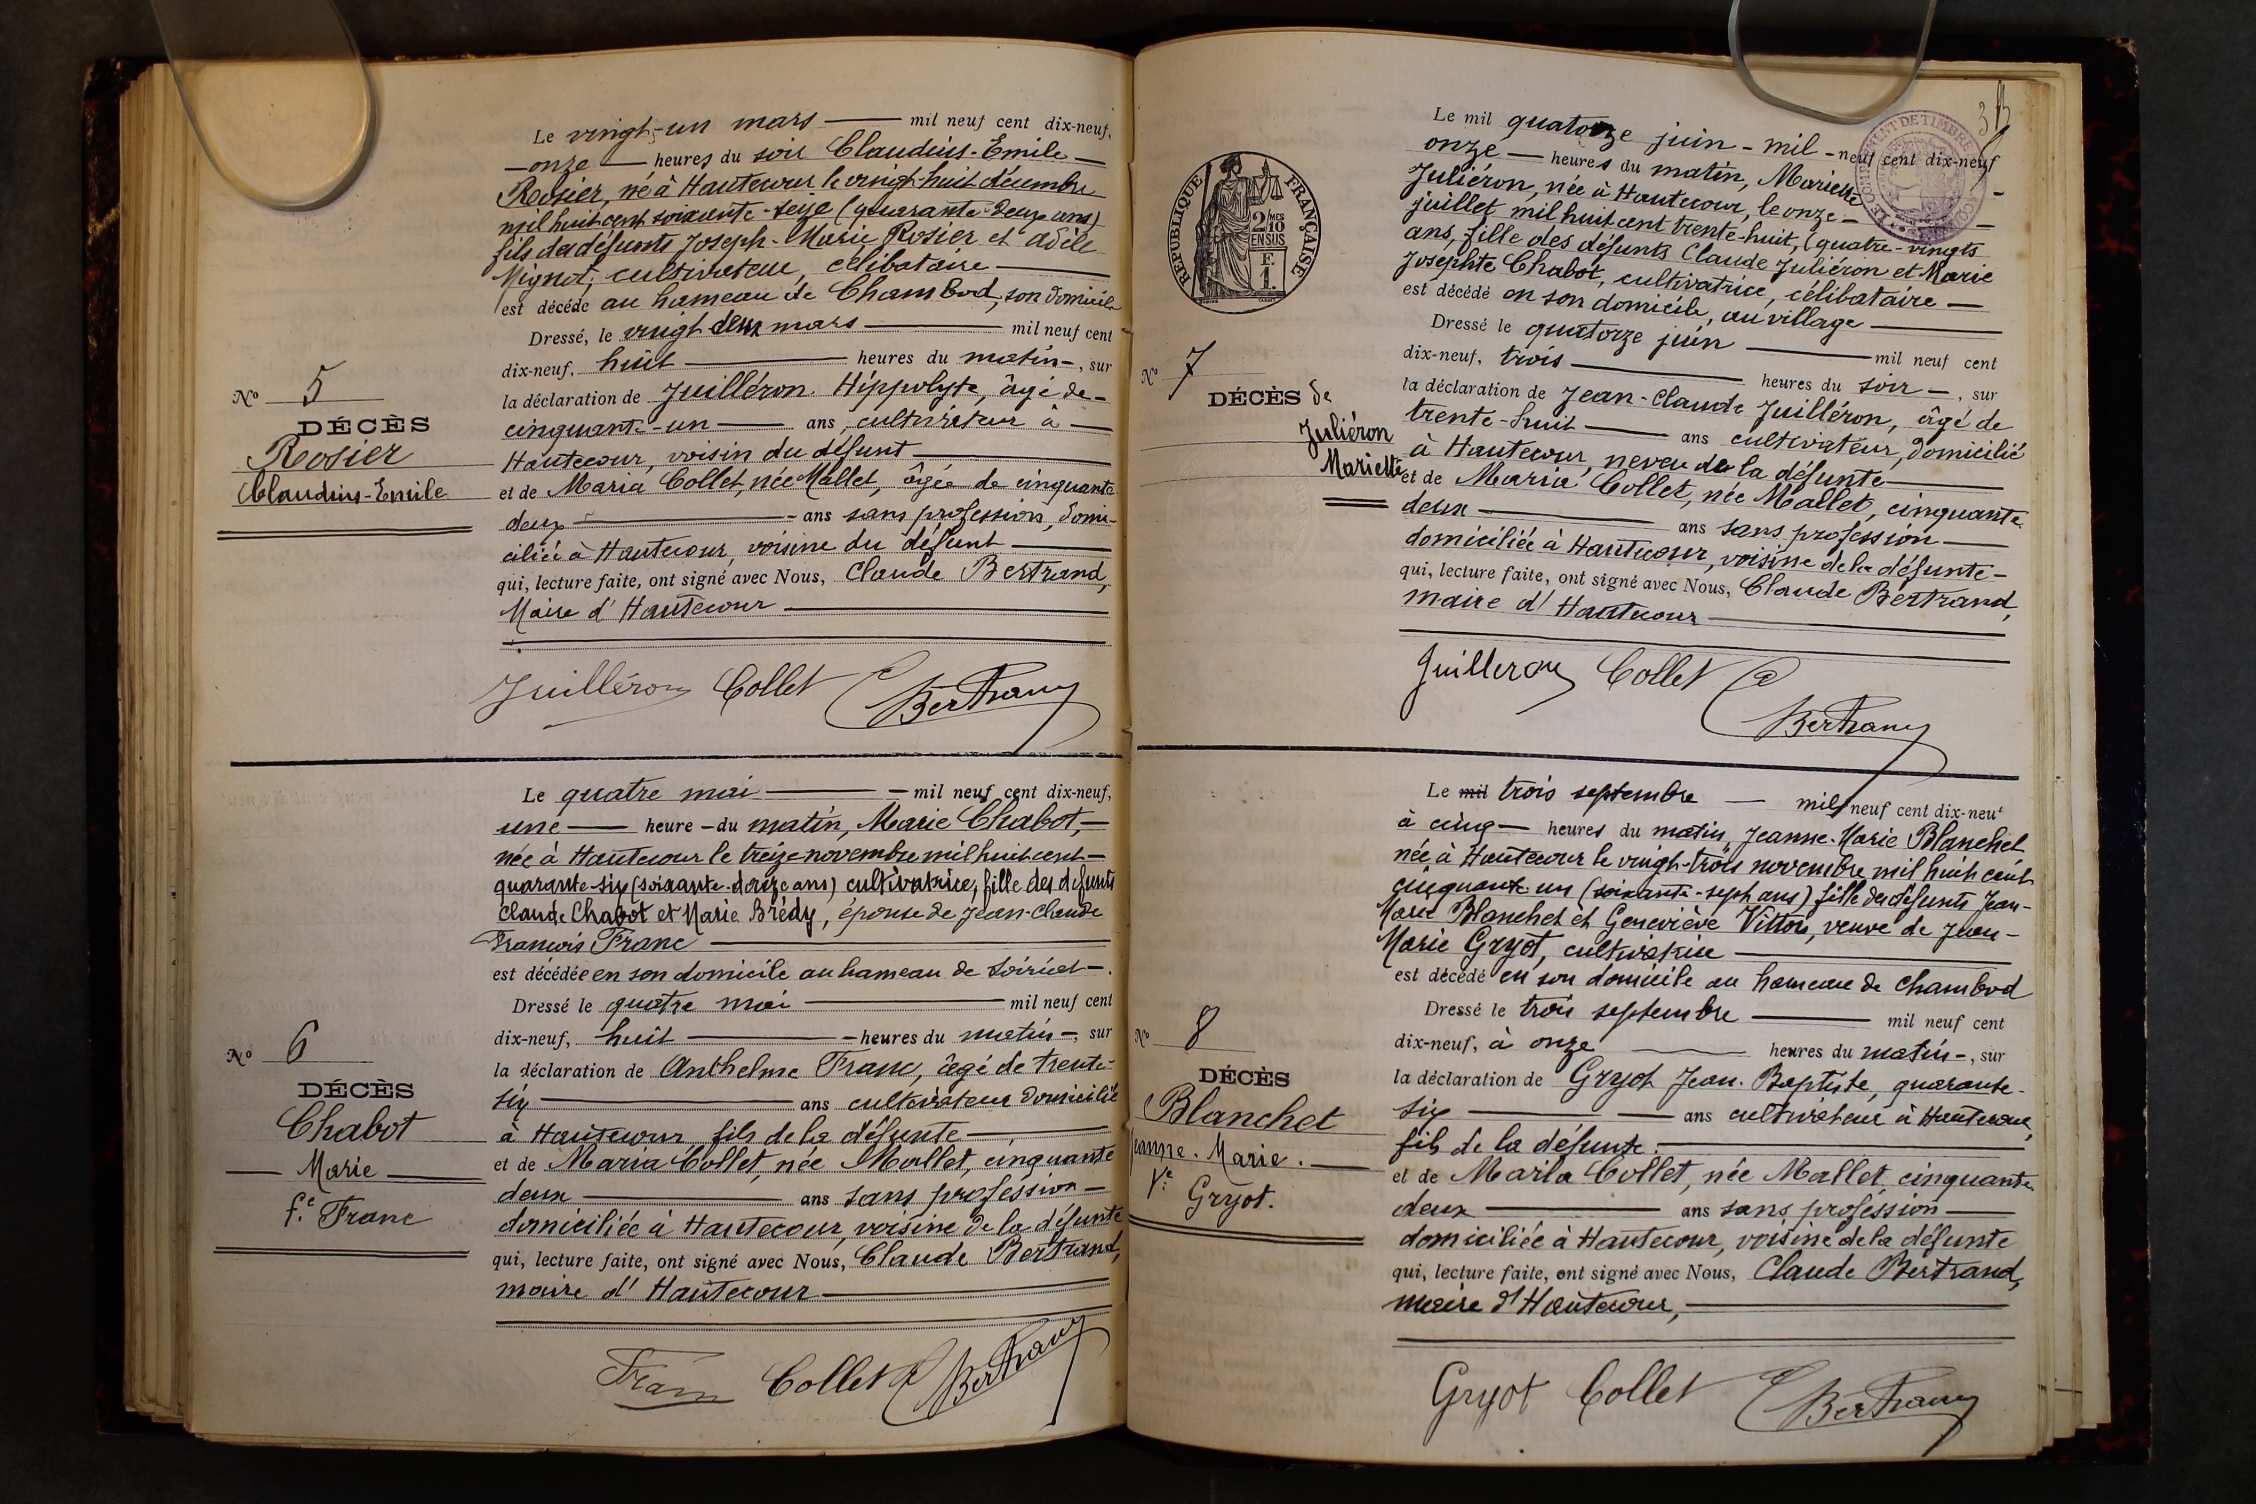 Le vingt-un mars — mil neuf cent dix-neuf,
— onze — heures du soir Claudius-Emile —
Rosier, né à Hautecour le vingt-huit décembre
mil huit cent soixante-seye (quarante-deux ans)
fils des défunts Joseph-Marie Rosier et Adèle
Mignot, cultivateur, célibataire —
est décédé au hameau de Chambod, son domicile
Dressé, le vingt deux mars — mil neuf cent
dix-neuf, huit — heures du matin —, sur
la déclaration de Juilléron Hippolyte, âgé de —
cinquante-un — ans, cultivateur à —
Hautecour, voisin du défunt —
et de Maria Collet, née Mallet, âgée de cinquante
deux — ans sans profession, domi-
ciliée à Hautecour, voisine du défunt —
qui, lecture faite, ont signé avec Nous, Claude Bertrand,
Maire d'Hautecour —
No 5
DÉCÈS
Rosier
Claudius-Emile
Juilléron Collet C Bertrand
Le quatre mai — mil neuf cent dix-neuf,
une — heure — du matin, Marie Chabot, —
née à Hautecour le treize novembre mil huit cent —
quarante-six (soixante-douze ans) cultivatrice, fille des défunts
Claude Chabot et Marie Brédy, épouse de Jean-Claude
François Franc —
est décédée en son domicile au hameau de Soiriat —.
Dressé le quatre mai — mil neuf cent
dix-neuf, huit — heures du matin —, sur
la déclaration de Anthelme Franc, âgé de trente-
six — ans cultivateur domicilié
à Hautecour fils de la défunte —
et de Maria Collet, née Mallet, cinquante
deux — ans sans profession —
domiciliée à Hautecour, voisine de la défunte
qui, lecture faite, ont signé avec Nous, Claude Bertrand,
maire d'Hautecour —
No 6
DÉCÈS
Chabot
— Marie —
fe Franc
Franc Collet C Bertrand
REPUBLIQUE FRANÇAISE
2/10 MES
EN SUS
F.
1.
Le mil quatorze juin - mil - neuf cent dix-neuf
onze — heures du matin, Mariette
Juliéron, née à Hautecour, le onze —
juillet mil huit cent trente-huit, (quatre-vingts
ans, fille des défunts Claude Juliéron et Marie
Josephte Chabot, cultivatrice, célibataire —
est décédé en son domicile, au village —
Dressé le quatorze juin — mil neuf cent
dix-neuf, trois — heures du soir —, sur
la déclaration de Jean-Claude Juilléron, âgé de
trente-huit — ans cultivateur, domicilié
à Hautecour, neveu de la défunte —
et de Maria Collet, née Mallet, cinquante
deux — ans sans profession —
domiciliée à Hautecour, voisine de la défunte —
qui, lecture faite, ont signé avec Nous, Claude Bertrand,
maire d'Hautecour —
No 7
DÉCÈS de
Juliéron
Mariette
Juilleron Collet C Bertrand
Le mil trois septembre — mil neuf cent dix-neuf
à cinq — heures du matin, Jeanne-Marie Blanchet
née à Hautecour le vingt-trois novembre mil huit cent
cinquante-un (soixante-sept ans) fille des défunts Jean-
Marie Blanchet et Geneviève Vitton, veuve de Jean-
Marie Gryot, cultivatrice —
est décédé en son domicile au hameau de Chambod
Dressé le trois septembre — mil neuf cent
dix-neuf, à onze — heures du matin —, sur
la déclaration de Gryot Jean-Baptiste, quarante-
six — ans cultivateur à Hautecour,
fils de la défunte. —
et de Maria Collet, née Mallet cinquante
deux — ans sans profession —
domiciliée à Hautecour, voisine de la défunte
qui, lecture faite, ont signé avec Nous, Claude Bertrand,
maire d'Hautecour, —
No 8
DÉCÈS
Blanchet
Jeanne-Marie. —
Ve Gryot.
Gryot Collet C Bertrand